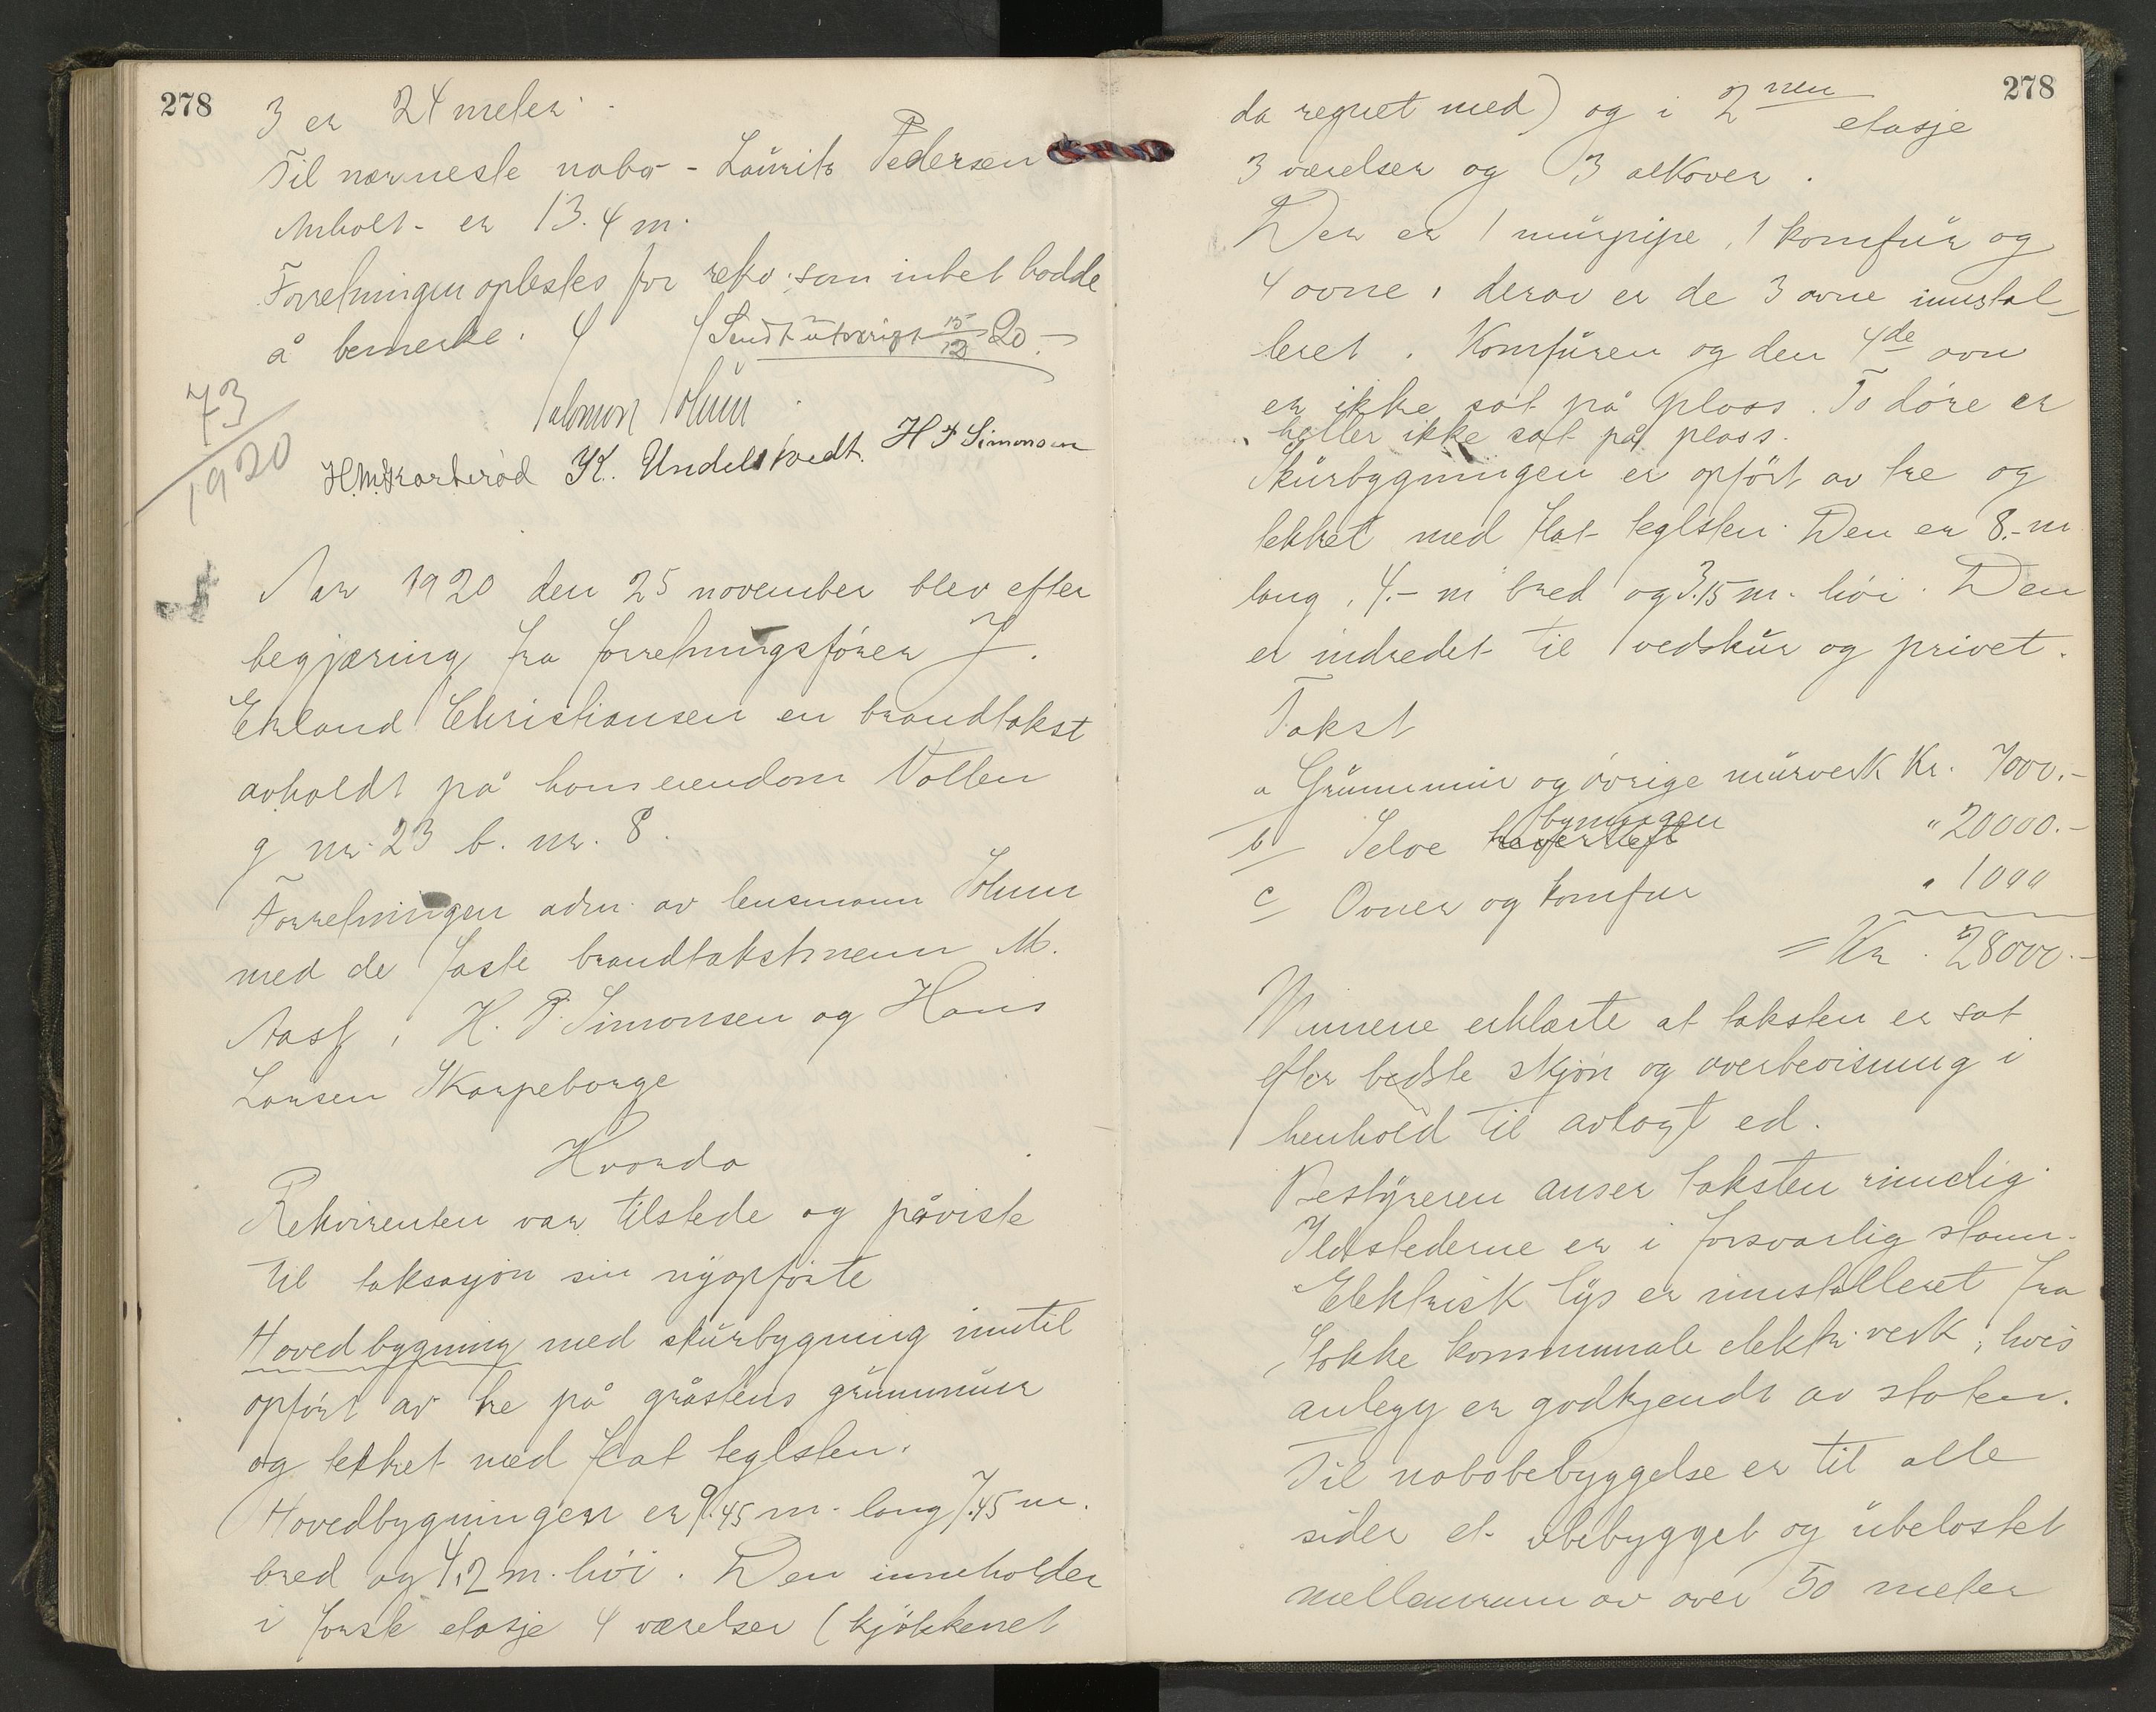 278
3 er 24 meter.
Til nærmeste nabo - Laurits Pedersen
Anholt - er 13.4 m.
Forretningen oplestes for rekv. som intet hadde
å bemerke.
Sendt utskrigt 15/12 20.-
Salomon Solum
H.M. Skarterød K. Undelstvedt. H P Simonsen
73
1920
Aar 1920 den 25 november blev efter
begjæring fra forretningsfører J.
Erland Christiansen en brandtakst
avholdt på hans eiendom Vollen
g nr. 23 b. nr. 8.
Forretningen adm. av lensmann Solum
med de faste brandtakstmenn M.
Aasf, H. P. Simonsen og Hans
Larsen Skarpeborge
Hvorda
Rekvirenten var tilstede og påviste
til taksasjon sin nyopførte
Hovedbygning med skurbygning inntil
opført av tre på gråstens grunnmur
og tekket med flat teglsten.
Hovedbygningen er 9.45 m. lang 7.45 m.
bred og 4,2 m. høi. Den inneholder
i første etasje 4 værelser (kjøkkenet
278
da regnet med) og i 2nen etasje
3 værelser og 3 alkover.
Der er 1 murpipe, 1 komfur og
4 ovne, derav er de 3 ovne innstal-
leret. Komfuren og den 4de ovn
er ikke sat på plass. To døre er
heller ikke sat på plass.
Skurbygningen er opført av tre og
tekket med flat teglsten. Den er 8.- m
lang, 4.- m bred og 3.15 m. høi. Den
er indredet til vedskur og privet.
Takst
a Grunnmur og øvrige murverk Kr. 7000.-
b Selve haverkeft bygningen " 20000.-
c Ovner og komfur " 1000
= Kr. 28000.-
Mennene erklærte at taksten er sat
efter bedste skjøn og overbevisning i
henhold til avlagt ed.
Bestyreren anser taksten rimelig
Ildstederne er i forsvarlig stann.
Elektrisk lys er innstalleret fra
Stokke kommunale elektr. verk, hvis
anlegg er godkjendt av staten.
Til nabobebyggelse er til alle
sider et ubebygget og ubelastet
mellemrum av over 50 meter